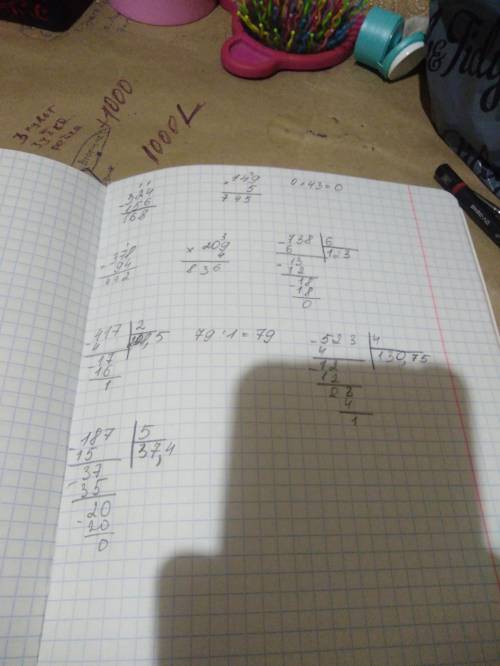 1000
1000L
-324
156
168
× 149
5
745
0 × 43 = 0
-378
94
× 209
4
836
-738 | 6
6 | 123
-13
12
-18
18
0
417 | 2
4
17
-16
1
79 · 1 = 79
-523 | 4
4 | 130,75
-12
12
1
-187 | 5
15 | 37,4
-37
35
-20
20
0